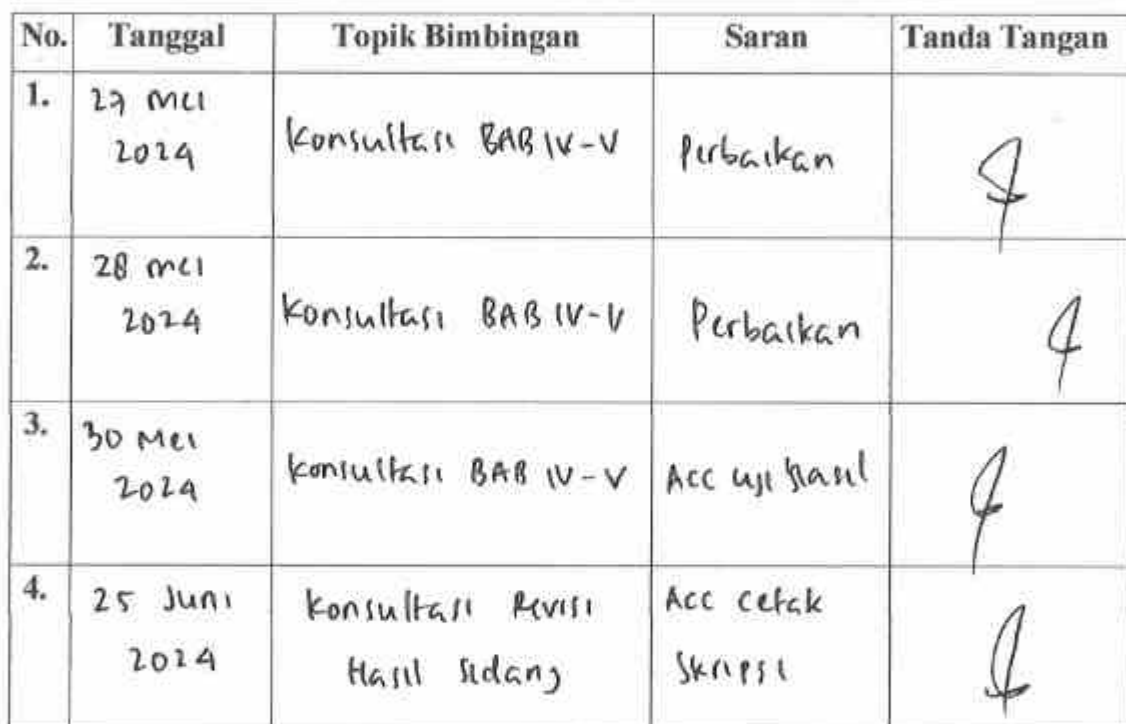 No. Tanggal Topik Bimbingan Saran Tanda Tangan
1. 27 Mei
2024 Konsultasi BAB IV-V Perbaikan
2. 28 Mei
2024 Konsultasi BAB IV-V Perbaikan
3. 30 Mei
2024 Konsultasi BAB IV-V Acc uji Hasil
4. 25 Juni Konsultasi Revisi Acc cetak
2024 Hasil Sidang Skripsi